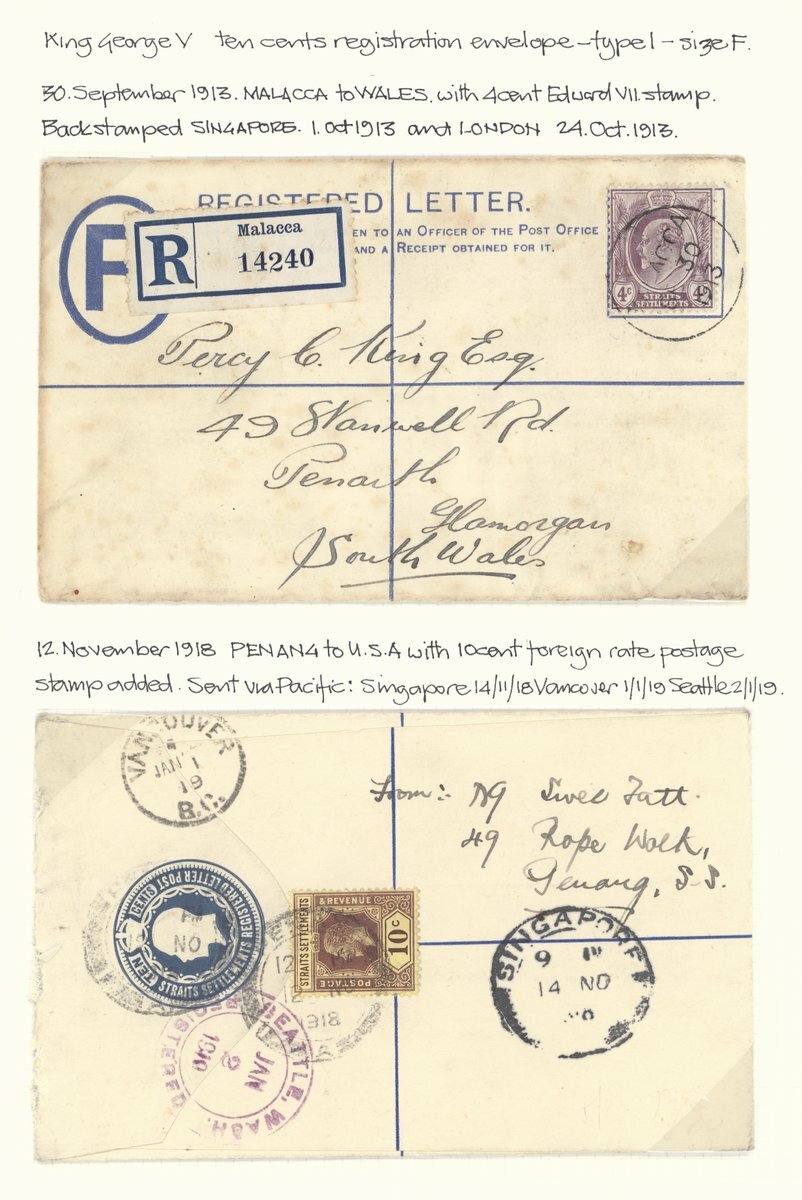 King George V ten cents registration envelope - type 1 - size F.
30. September 1913. MALACCA to WALES. with 4cent Edward VII. stamp.
Backstamped SINGAPORE. 1. Oct 1913 and LONDON 24. Oct. 1913.
REGISTERED LETTER.
EN TO AN OFFICER OF THE POST OFFICE
AND A RECEIPT OBTAINED FOR IT.
R
Malacca
14240
ACCA
30
1913
4c 4c
STRAITS
SETTLEMENTS
Percy C. King Esq.
49 Stanwell Rd.
Penarth
Glamorgan
South Wales
12. November 1918 PENANG to U.S.A with 10cent foreign rate postage
stamp added. Sent via Pacific: Singapore 14/11/18 Vancouver 1/1/19 Seattle 2/1/19.
VANCOUVER
JAN 1
19
B.C.
From :- Ng Swee Fatt.
49 Rope Walk,
Penang, S.S.
TEN CENTS POST LETTER REGISTERED SETTLEMENTS STRAITS
NO
& REVENUE
STRAITS SETTLEMENTS
POSTAGE
10c
12
1918
SINGAPORE
9
14 NO
SEATTLE, WASH.
JAN
2
1919
REGISTERED